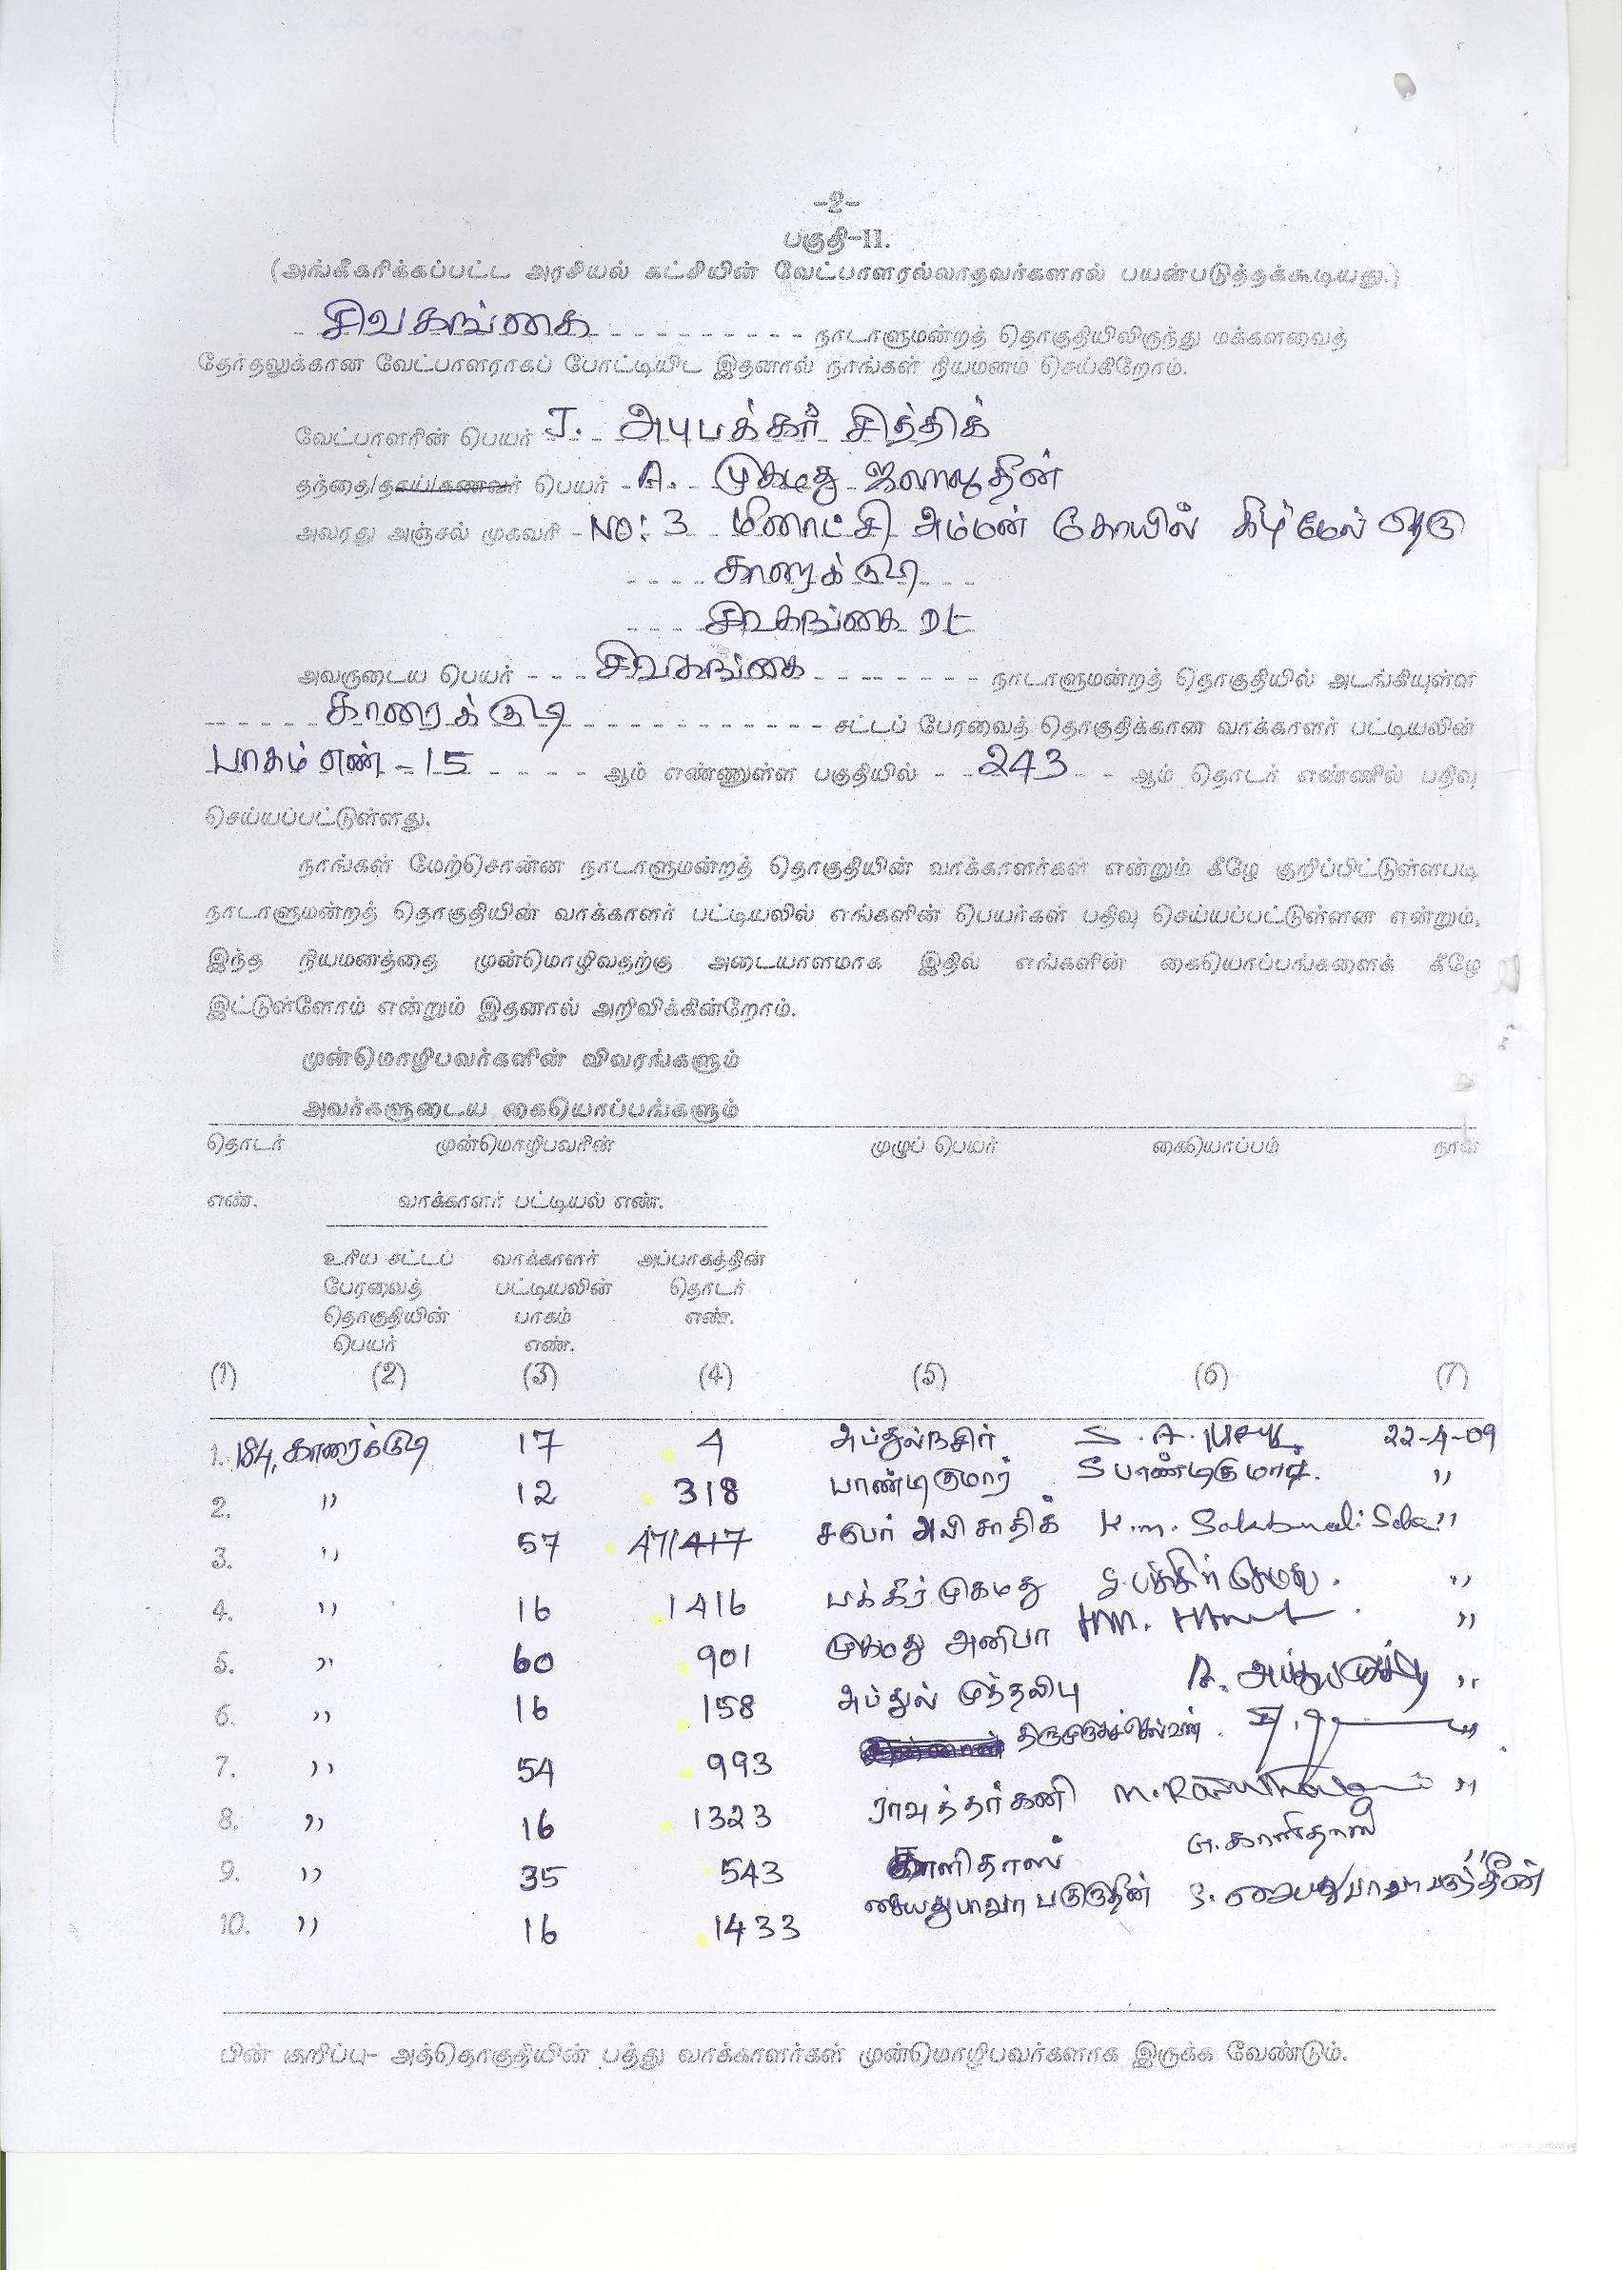 -2-
பகுதி-II.
(அங்கீகரிக்கப்பட்ட அரசியல் கட்சியின் வேட்பாளரல்லாதவர்களால் பயன்படுத்தக்கூடியது.)
சிவகங்கை நாடாளுமன்றத் தொகுதியிலிருந்து மக்களவைத்
தேர்தலுக்கான வேட்பாளராகப் போட்டியிட இதனால் நாங்கள் நியமனம் செய்கிறோம்.
வேட்பாளரின் பெயர் J. அபுபக்கர் சித்திக்
தந்தை/தாய்/கணவர் பெயர் A. முகமது ஜலாலுதீன்
அவரது அஞ்சல் முகவரி NO: 3 மீனாட்சி அம்மன் கோயில் கீழ்மேல் தெரு
காரைக்குடி
சிவகங்கை Dt
அவருடைய பெயர் சிவகங்கை நாடாளுமன்றத் தொகுதியில் அடங்கியுள்ள
காரைக்குடி சட்டப் பேரவைத் தொகுதிக்கான வாக்காளர் பட்டியலின்
பாகம் எண் - 15 ஆம் எண்ணுள்ள பகுதியில் 243 ஆம் தொடர் எண்ணில் பதிவு
செய்யப்பட்டுள்ளது.
நாங்கள் மேற்சொன்ன நாடாளுமன்றத் தொகுதியின் வாக்காளர்கள் என்றும் கீழே குறிப்பிட்டுள்ளபடி
நாடாளுமன்றத் தொகுதியின் வாக்காளர் பட்டியலில் எங்களின் பெயர்கள் பதிவு செய்யப்பட்டுள்ளன என்றும்,
இந்த நியமனத்தை முன்மொழிவதற்கு அடையாளமாக இதில் எங்களின் கையொப்பங்களைக் கீழே
இட்டுள்ளோம் என்றும் இதனால் அறிவிக்கின்றோம்.
முன்மொழிபவர்களின் விவரங்களும்
அவர்களுடைய கையொப்பங்களும்
தொடர் முன்மொழிபவரின் முழுப் பெயர் கையொப்பம் நாள்
எண். வாக்காளர் பட்டியல் எண்.
உரிய சட்டப் வாக்காளர் அப்பாகத்தின்
பேரவைத் பட்டியலின் தொடர்
தொகுதியின் பாகம் எண்.
பெயர் எண்.
(1) (2) (3) (4) (5) (6) (7)
1. 184, காரைக்குடி 17 4 அப்துல்நசிர் S. A. 22-4-09
2. " 12 318 பாண்டிகுமார் S பாண்டிகுமார். "
3. " 57 47/417 அலி சாதிக் K.m. "
4. " 16 1416 பக்கீர் முகமது "
5. " 60 901 முகமது அனிபா HM. "
6. " 16 158 அப்துல் முத்தலிபு A. "
7. " 54 993 திருமுருகச்செல்வன் "
8. " 16 1323 ராவுத்தர்கனி M. "
9. " 35 543 காளிதாஸ் G. காளிதாஸ் "
10. " 16 1433 சையதுபாவா பகுருதீன் S.
பின் குறிப்பு- அத்தொகுதியின் பத்து வாக்காளர்கள் முன்மொழிபவர்களாக இருக்க வேண்டும்.